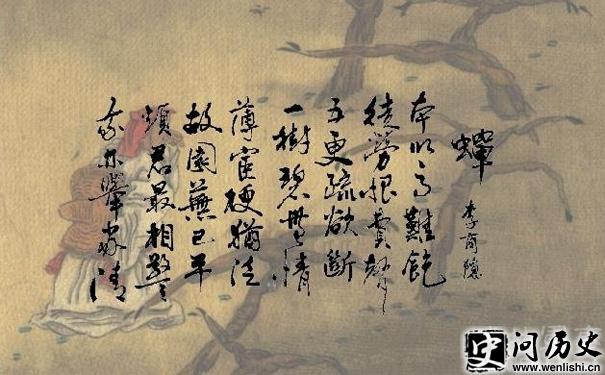 蟬
李商隱
本以高難飽
徒勞恨費聲
五更疏欲斷
一樹碧無情
薄宦梗猶泛
故園蕪已平
煩君最相警
我亦舉家清
史 问历史
www.wenlishi.cn